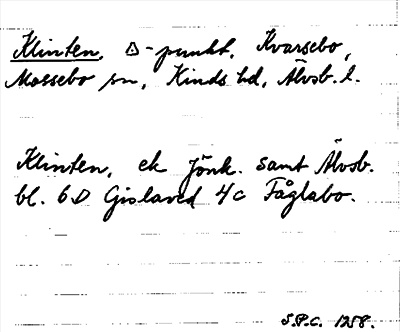 Klinten, △-punkt, Kvarsebo,
Mossebo sn, Kinds hd, Älvsb. l.
Klinten, ek Jönk. samt Älvsb.
bl. 6D Gislaved 4c Fåglabo.
S.P.C. 1258.